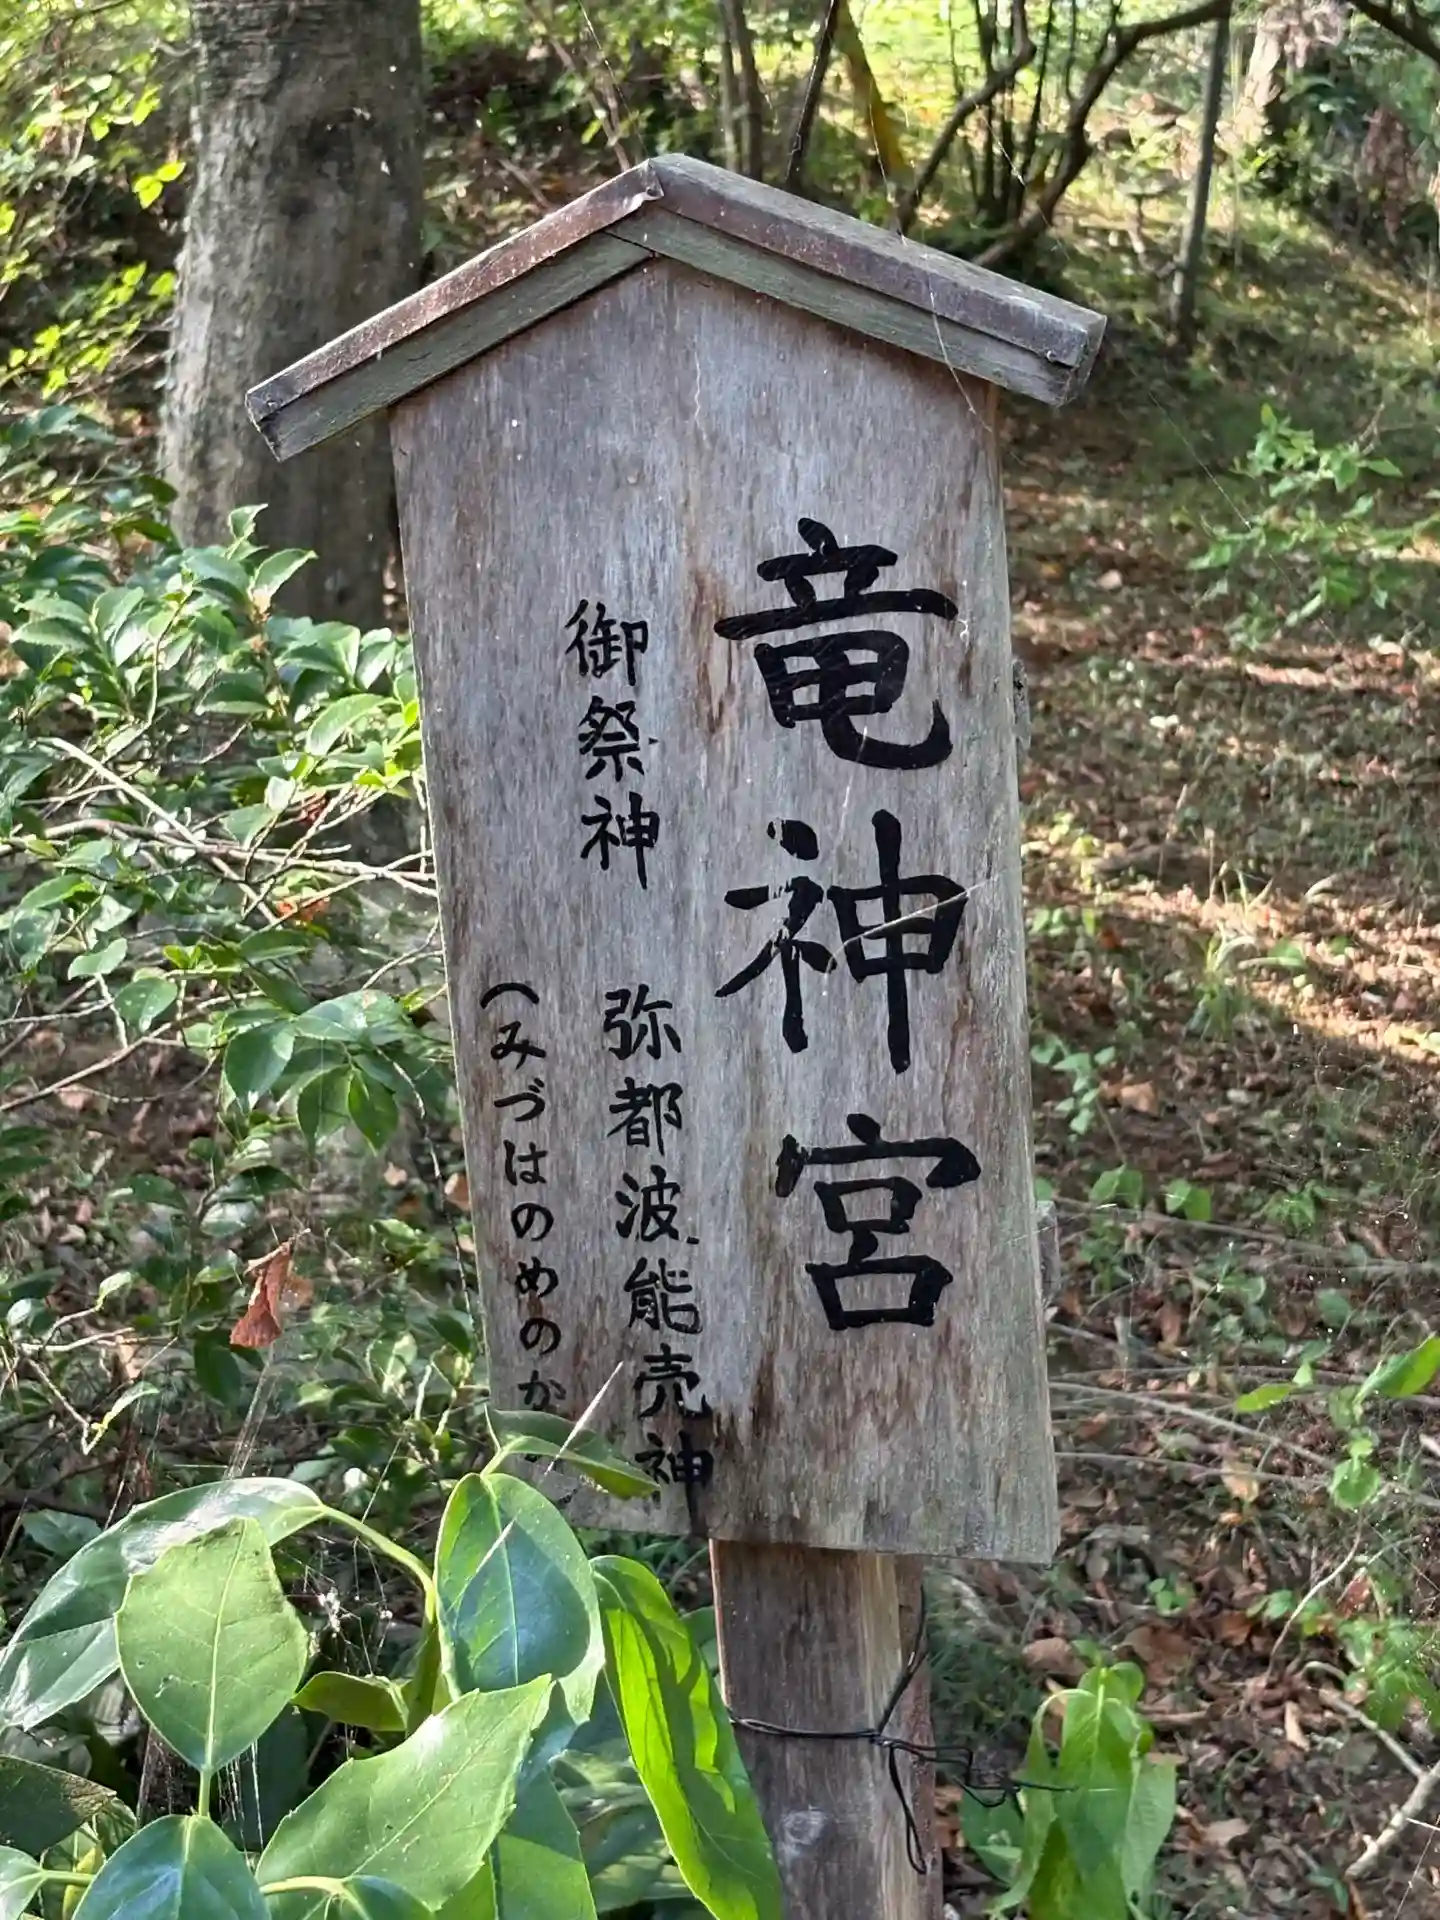 竜神宮
御祭神 弥都波能売神
(みづはのめのか